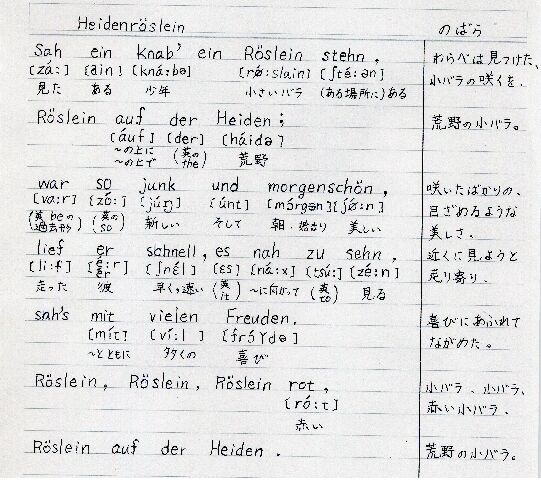 Heidenröslein のばら
Sah ein Knab' ein Röslein stehn, わらべは見つけた、
[zá:] [áin] [kná:bə] [rǿ:slain] [ʃté:ən] 小バラの咲くを、
見た ある 少年 小さいバラ (ある場所に)ある
Röslein auf der Heiden; 荒野の小バラ。
[áuf] [der] [háidə]
~の上に (英の 荒野
~の上で the)
war so junk und morgenschön, 咲いたばかりの、
[va:r] [zó:] [júŋ] [únt] [mórgən] [ʃǿ:n] 目ざめるような
(英beの過去形) (英のso) 新しい そして 朝 美しい 美しさ、
lief er schnell, es nah zu sehn, 近くに見ようと
[li:f] [é:r] [ʃnél] [ɛs] [ná:x] [tsú:] [zé:n] 走り寄り、
er
走った 彼 早く,速い (英it) ~に向かって (英to) 見る
sah's mit vielen Freuden. 喜びにあふれて
[mít] [ví:l] [frɔ́ydə] ながめた。
~とともに 多くの 喜び
Röslein, Röslein, Röslein rot, 小バラ、小バラ、
[ró:t] 赤い小バラ、
赤い
Röslein auf der Heiden. 荒野の小バラ。